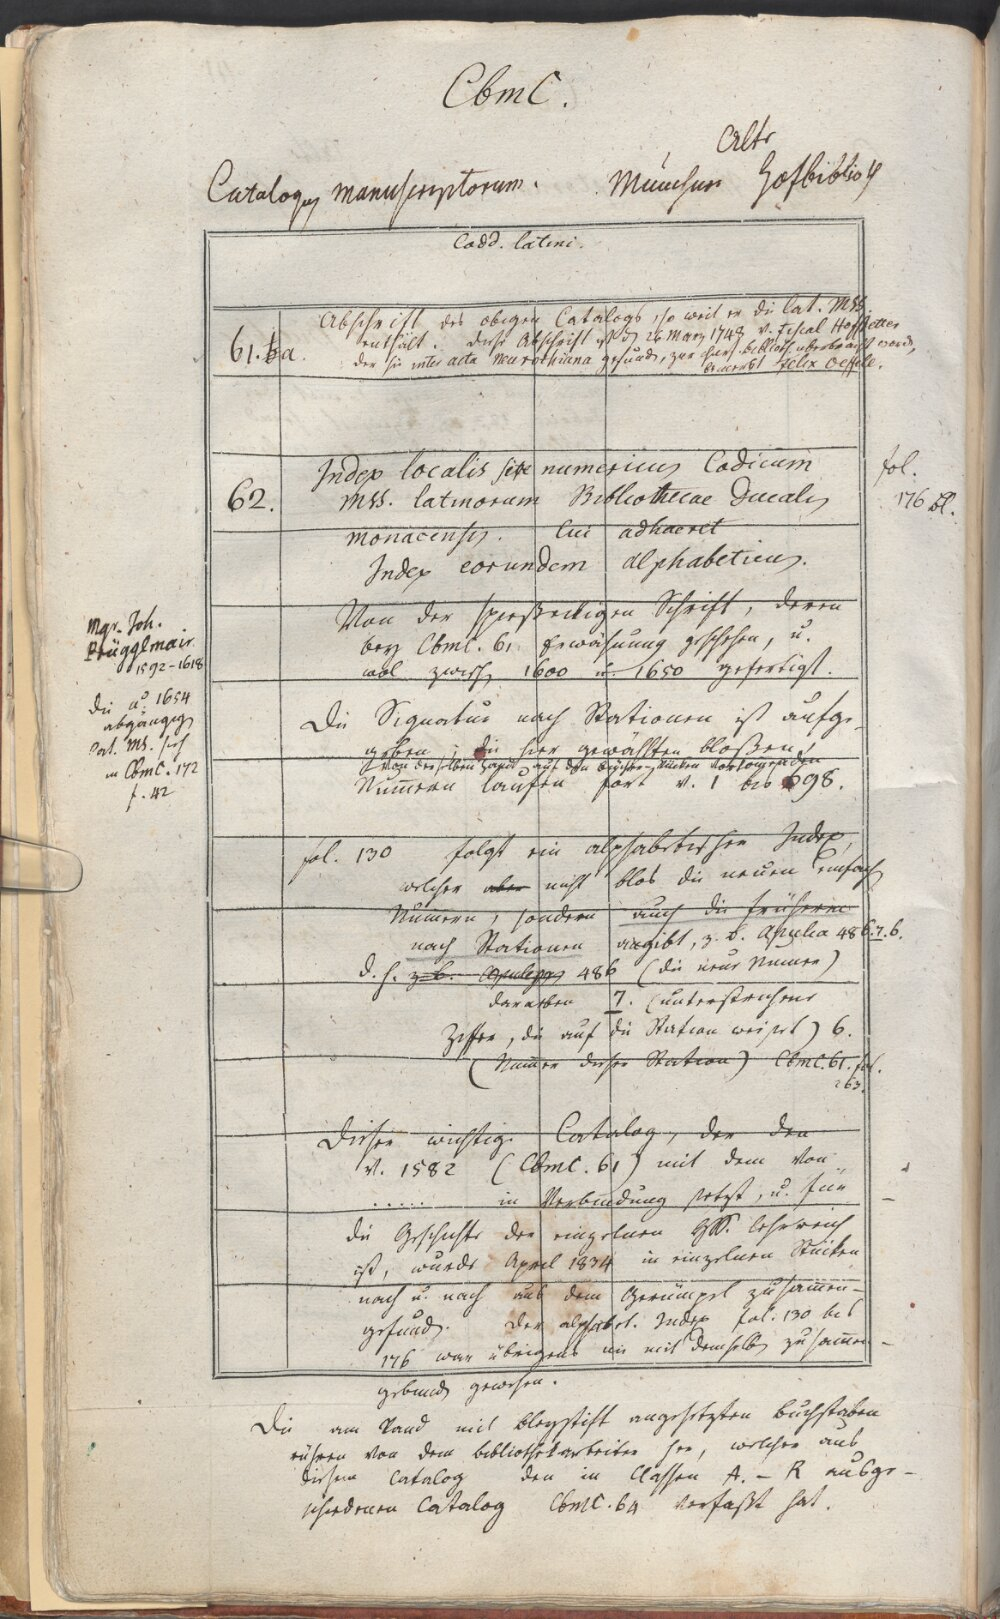 CbmC.
Alte
Catalogus manuscriptorum. München Hofbiblioth
Codd. latini.
61.a.
Abschrift des obigen Catalogs, so weit er die Lat. MSS.
enthält. Diese Abschrift ist den 26 März 1748 v. Fiscal Hofstetter
der sie inter acta gefunden, zur churf. biblioth. überbracht worden,
bemerkt Felix Oeffele.
62.
Index localis sive numericus Codicum
MSS. latinorum Bibliothecae Ducalis
monacensis. Cui adhaeret
Index eorundem alphabeticus.
fol.
176 Bl.
Von der Schrift, deren
bey CbmC. 61. Erwähnung geschehen, u.
wol zwisch. 1600 u. 1650 gefertigt.
Mgr. Joh.
Prügglmair
1592-1618
Die u. 1654
abgängig
Cat. MS. sieh
in CbmC. 172
f. 42
Die Signatur nach Stationen ist aufge-
geben; die hier gewählten bloßen,
von derselben Hand auf den Bücherrücken vorkommenden
Nummern laufen fort v. 1 bis 698.
fol. 130 folgt ein alphabetischer Index,
welcher aber nicht blos die neuen einfach
Nummern, sondern auch die früheren
nach Stationen angibt, z. b. Apuleia 486.7.6.
d. h. z. b. 486 (die neue Numer)
daneben 7. (unterstrichene
Ziffer, die auf die Station weiset) 6.
(Numer dieser Station) CbmC. 61. fol.
263.
Dieser wichtige Catalog, der den
v. 1582 (CbmC. 61) mit dem von
..... in Verbindung setzt, u. für
die Geschichte der einzelnen HSS. lehrreich
ist, wurde April 1834 in einzelnen Stücken
nach u. nach aus dem Gerümpel zusammen-
gefunden. Der alphabet. Index fol. 130 bis
176 war übrigens nie mit demselben zusammen-
gebunden gewesen.
Die am Rand mit Bleystift angesetzten Buchstaben
rühren von dem bibliothekarbeiter her, welcher aus
diesem Catalog den in Classen A. – R ausge-
schiedenen Catalog CbmC. 64 verfaßt hat.